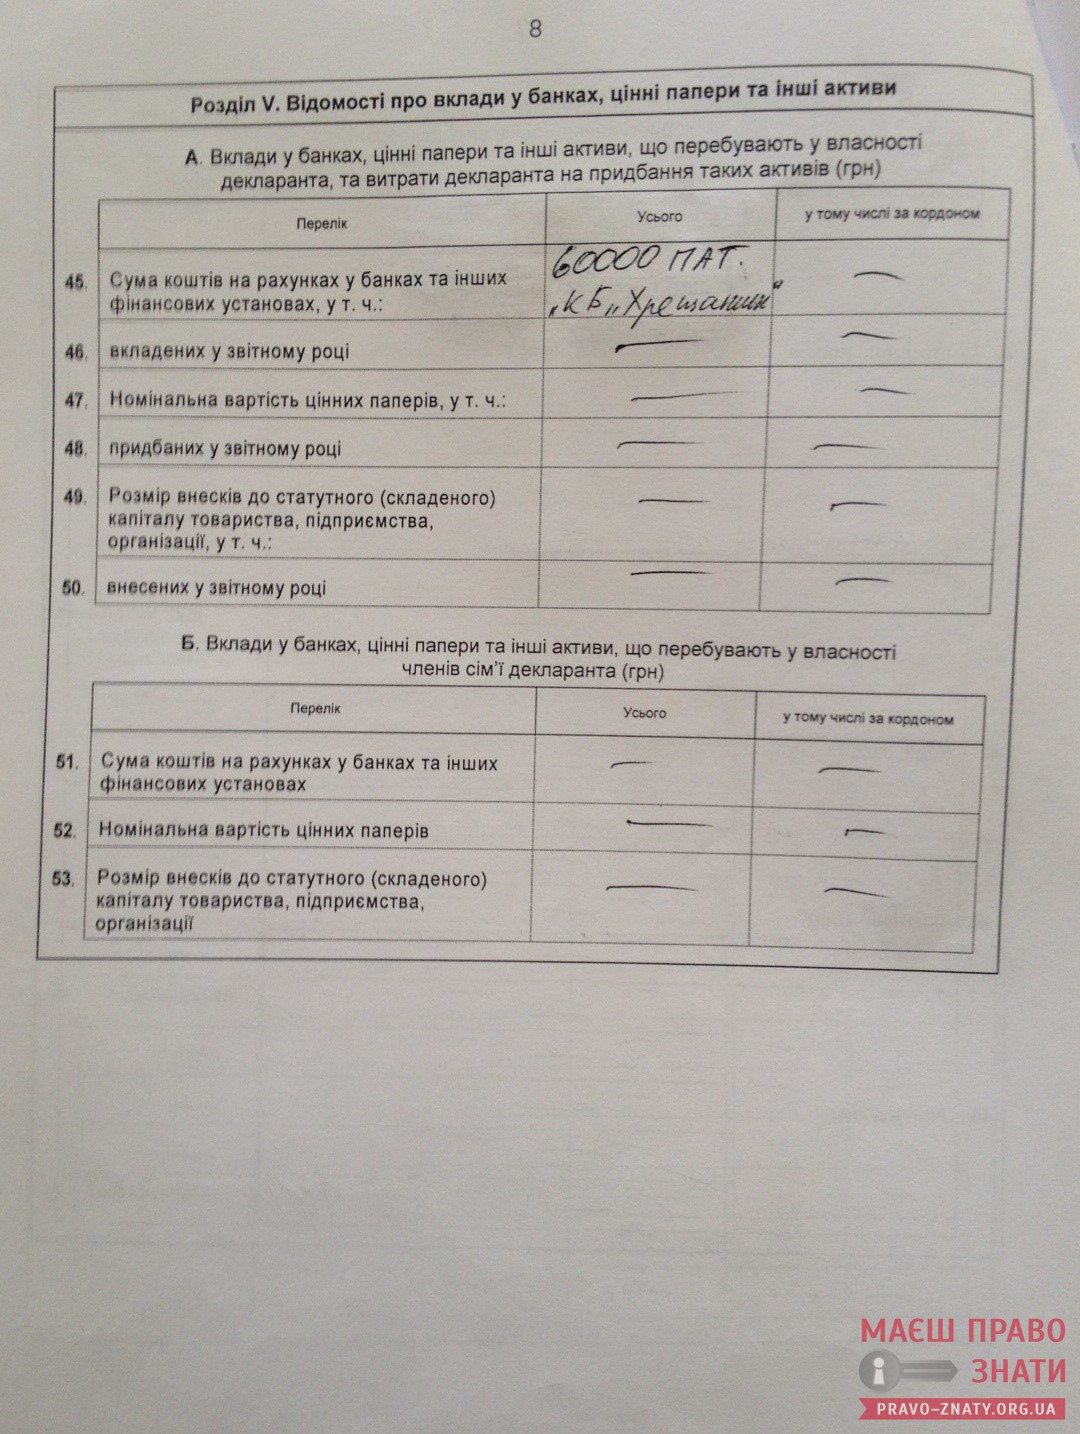 8
Розділ V. Відомості про вклади у банках, цінні папери та інші активи
А. Вклади у банках, цінні папери та інші активи, що перебувають у власності
декларанта, та витрати декларанта на придбання таких активів (грн)
Перелік Усього у тому числі за кордоном
45. Сума коштів на рахунках у банках та інших
фінансових установах, у т. ч.:
60000 ПАТ. —
„КБ„Хрещатик"
46. вкладених у звітному році — —
47. Номінальна вартість цінних паперів, у т. ч.: — —
48. придбаних у звітному році — —
49. Розмір внесків до статутного (складеного) — —
капіталу товариства, підприємства,
організації, у т. ч.:
50. внесених у звітному році — —
Б. Вклади у банках, цінні папери та інші активи, що перебувають у власності
членів сім’ї декларанта (грн)
Перелік Усього у тому числі за кордоном
51. Сума коштів на рахунках у банках та інших — —
фінансових установах
52. Номінальна вартість цінних паперів — —
53. Розмір внесків до статутного (складеного) — —
капіталу товариства, підприємства,
організації
МАЄШ ПРАВО
ЗНАТИ
PRAVO-ZNATY.ORG.UA